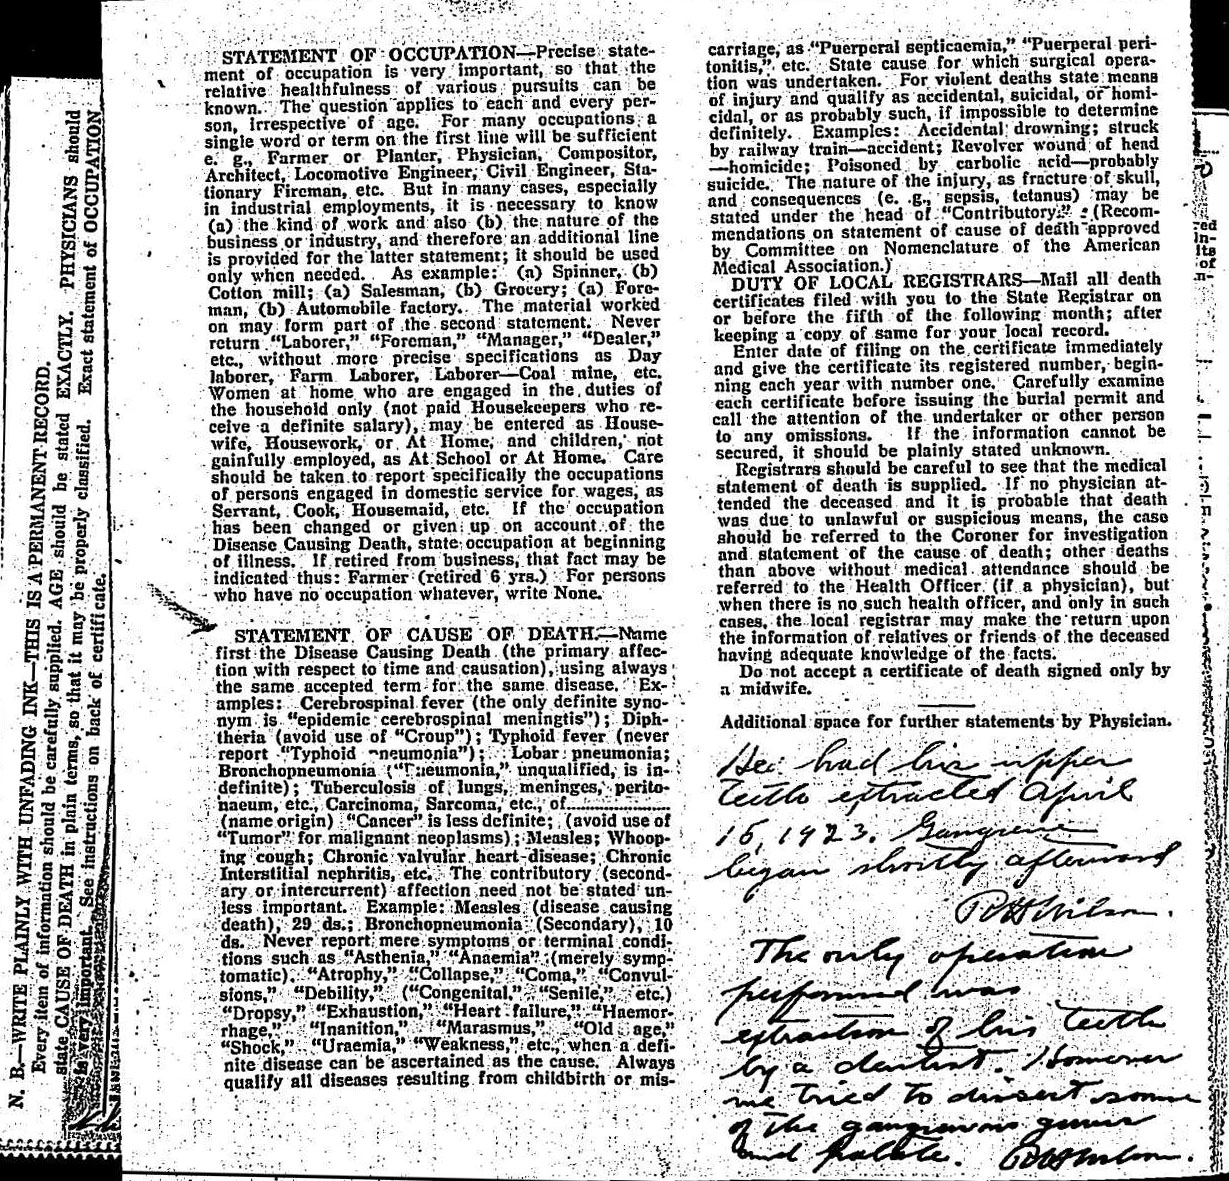 N. B.—WRITE PLAINLY WITH UNFADING INK—THIS IS A PERMANENT RECORD.
Every item of information should be carefully supplied. AGE should be stated EXACTLY. PHYSICIANS should
state CAUSE OF DEATH in plain terms, so that it may be properly classified. Exact statement of OCCUPATION
is very important. See instructions on back of certificate.
STATEMENT OF OCCUPATION—Precise state-
ment of occupation is very important, so that the
relative healthfulness of various pursuits can be
known. The question applies to each and every per-
son, irrespective of age. For many occupations a
single word or term on the first line will be sufficient
e. g., Farmer or Planter, Physician, Compositor,
Architect, Locomotive Engineer, Civil Engineer, Sta-
tionary Fireman, etc. But in many cases, especially
in industrial employments, it is necessary to know
(a) the kind of work and also (b) the nature of the
business or industry, and therefore an additional line
is provided for the latter statement; it should be used
only when needed. As example: (a) Spinner, (b)
Cotton mill; (a) Salesman, (b) Grocery; (a) Fore-
man, (b) Automobile factory. The material worked
on may form part of the second statement. Never
return "Laborer," "Foreman," "Manager," "Dealer,"
etc., without more precise specifications as Day
laborer, Farm Laborer, Laborer—Coal mine, etc.
Women at home who are engaged in the duties of
the household only (not paid Housekeepers who re-
ceive a definite salary), may be entered as House-
wife, Housework, or At Home, and children, not
gainfully employed, as At School or At Home. Care
should be taken to report specifically the occupations
of persons engaged in domestic service for wages, as
Servant, Cook, Housemaid, etc. If the occupation
has been changed or given up on account of the
Disease Causing Death, state occupation at beginning
of illness. If retired from business, that fact may be
indicated thus: Farmer (retired 6 yrs.) For persons
who have no occupation whatever, write None.
STATEMENT OF CAUSE OF DEATH.—Name
first the Disease Causing Death (the primary affec-
tion with respect to time and causation), using always
the same accepted term for the same disease. Ex-
amples: Cerebrospinal fever (the only definite syno-
nym is "epidemic cerebrospinal meningtis"); Diph-
theria (avoid use of "Croup"); Typhoid fever (never
report "Typhoid pneumonia"); Lobar pneumonia;
Bronchopneumonia ("Pneumonia," unqualified, is in-
definite); Tuberculosis of lungs, meninges, perito-
naeum, etc., Carcinoma, Sarcoma, etc., of....................
(name origin) "Cancer" is less definite; (avoid use of
"Tumor" for malignant neoplasms); Measles; Whoop-
ing cough; Chronic valvular heart disease; Chronic
Interstitial nephritis, etc. The contributory (second-
ary or intercurrent) affection need not be stated un-
less important. Example: Measles (disease causing
death), 29 ds.; Bronchopneumonia (Secondary), 10
ds. Never report mere symptoms or terminal condi-
tions such as "Asthenia," "Anaemia" (merely symp-
tomatic), "Atrophy," "Collapse," "Coma," "Convul-
sions," "Debility," ("Congenital," "Senile," etc.)
"Dropsy," "Exhaustion," "Heart failure," "Haemor-
rhage," "Inanition," "Marasmus," "Old age,"
"Shock," "Uraemia," "Weakness," etc., when a defi-
nite disease can be ascertained as the cause. Always
qualify all diseases resulting from childbirth or mis-
carriage, as "Puerperal septicaemia," "Puerperal peri-
tonitis," etc. State cause for which surgical opera-
tion was undertaken. For violent deaths state means
of injury and qualify as accidental, suicidal, or homi-
cidal, or as probably such, if impossible to determine
definitely. Examples: Accidental drowning; struck
by railway train—accident; Revolver wound of head
—homicide; Poisoned by carbolic acid—probably
suicide. The nature of the injury, as fracture of skull,
and consequences (e. .g., sepsis, tetanus) may be
stated under the head of "Contributory." (Recom-
mendations on statement of cause of death approved
by Committee on Nomenclature of the American
Medical Association.)
DUTY OF LOCAL REGISTRARS—Mail all death
certificates filed with you to the State Registrar on
or before the fifth of the following month; after
keeping a copy of same for your local record.
Enter date of filing on the certificate immediately
and give the certificate its registered number, begin-
ning each year with number one. Carefully examine
each certificate before issuing the burial permit and
call the attention of the undertaker or other person
to any omissions. If the information cannot be
secured, it should be plainly stated unknown.
Registrars should be careful to see that the medical
statement of death is supplied. If no physician at-
tended the deceased and it is probable that death
was due to unlawful or suspicious means, the case
should be referred to the Coroner for investigation
and statement of the cause of death; other deaths
than above without medical attendance should be
referred to the Health Officer (if a physician), but
when there is no such health officer, and only in such
cases, the local registrar may make the return upon
the information of relatives or friends of the deceased
having adequate knowledge of the facts.
Do not accept a certificate of death signed only by
a midwife.
Additional space for further statements by Physician.
He had his upper
teeth extracted April
15, 1923. Gangrene
began shortly afterward
Wilson.
The only operation
performed was
extraction of his teeth
by a dentist. However
we tried to dissect some
of the gangrenous gums
and palate. Wilson.